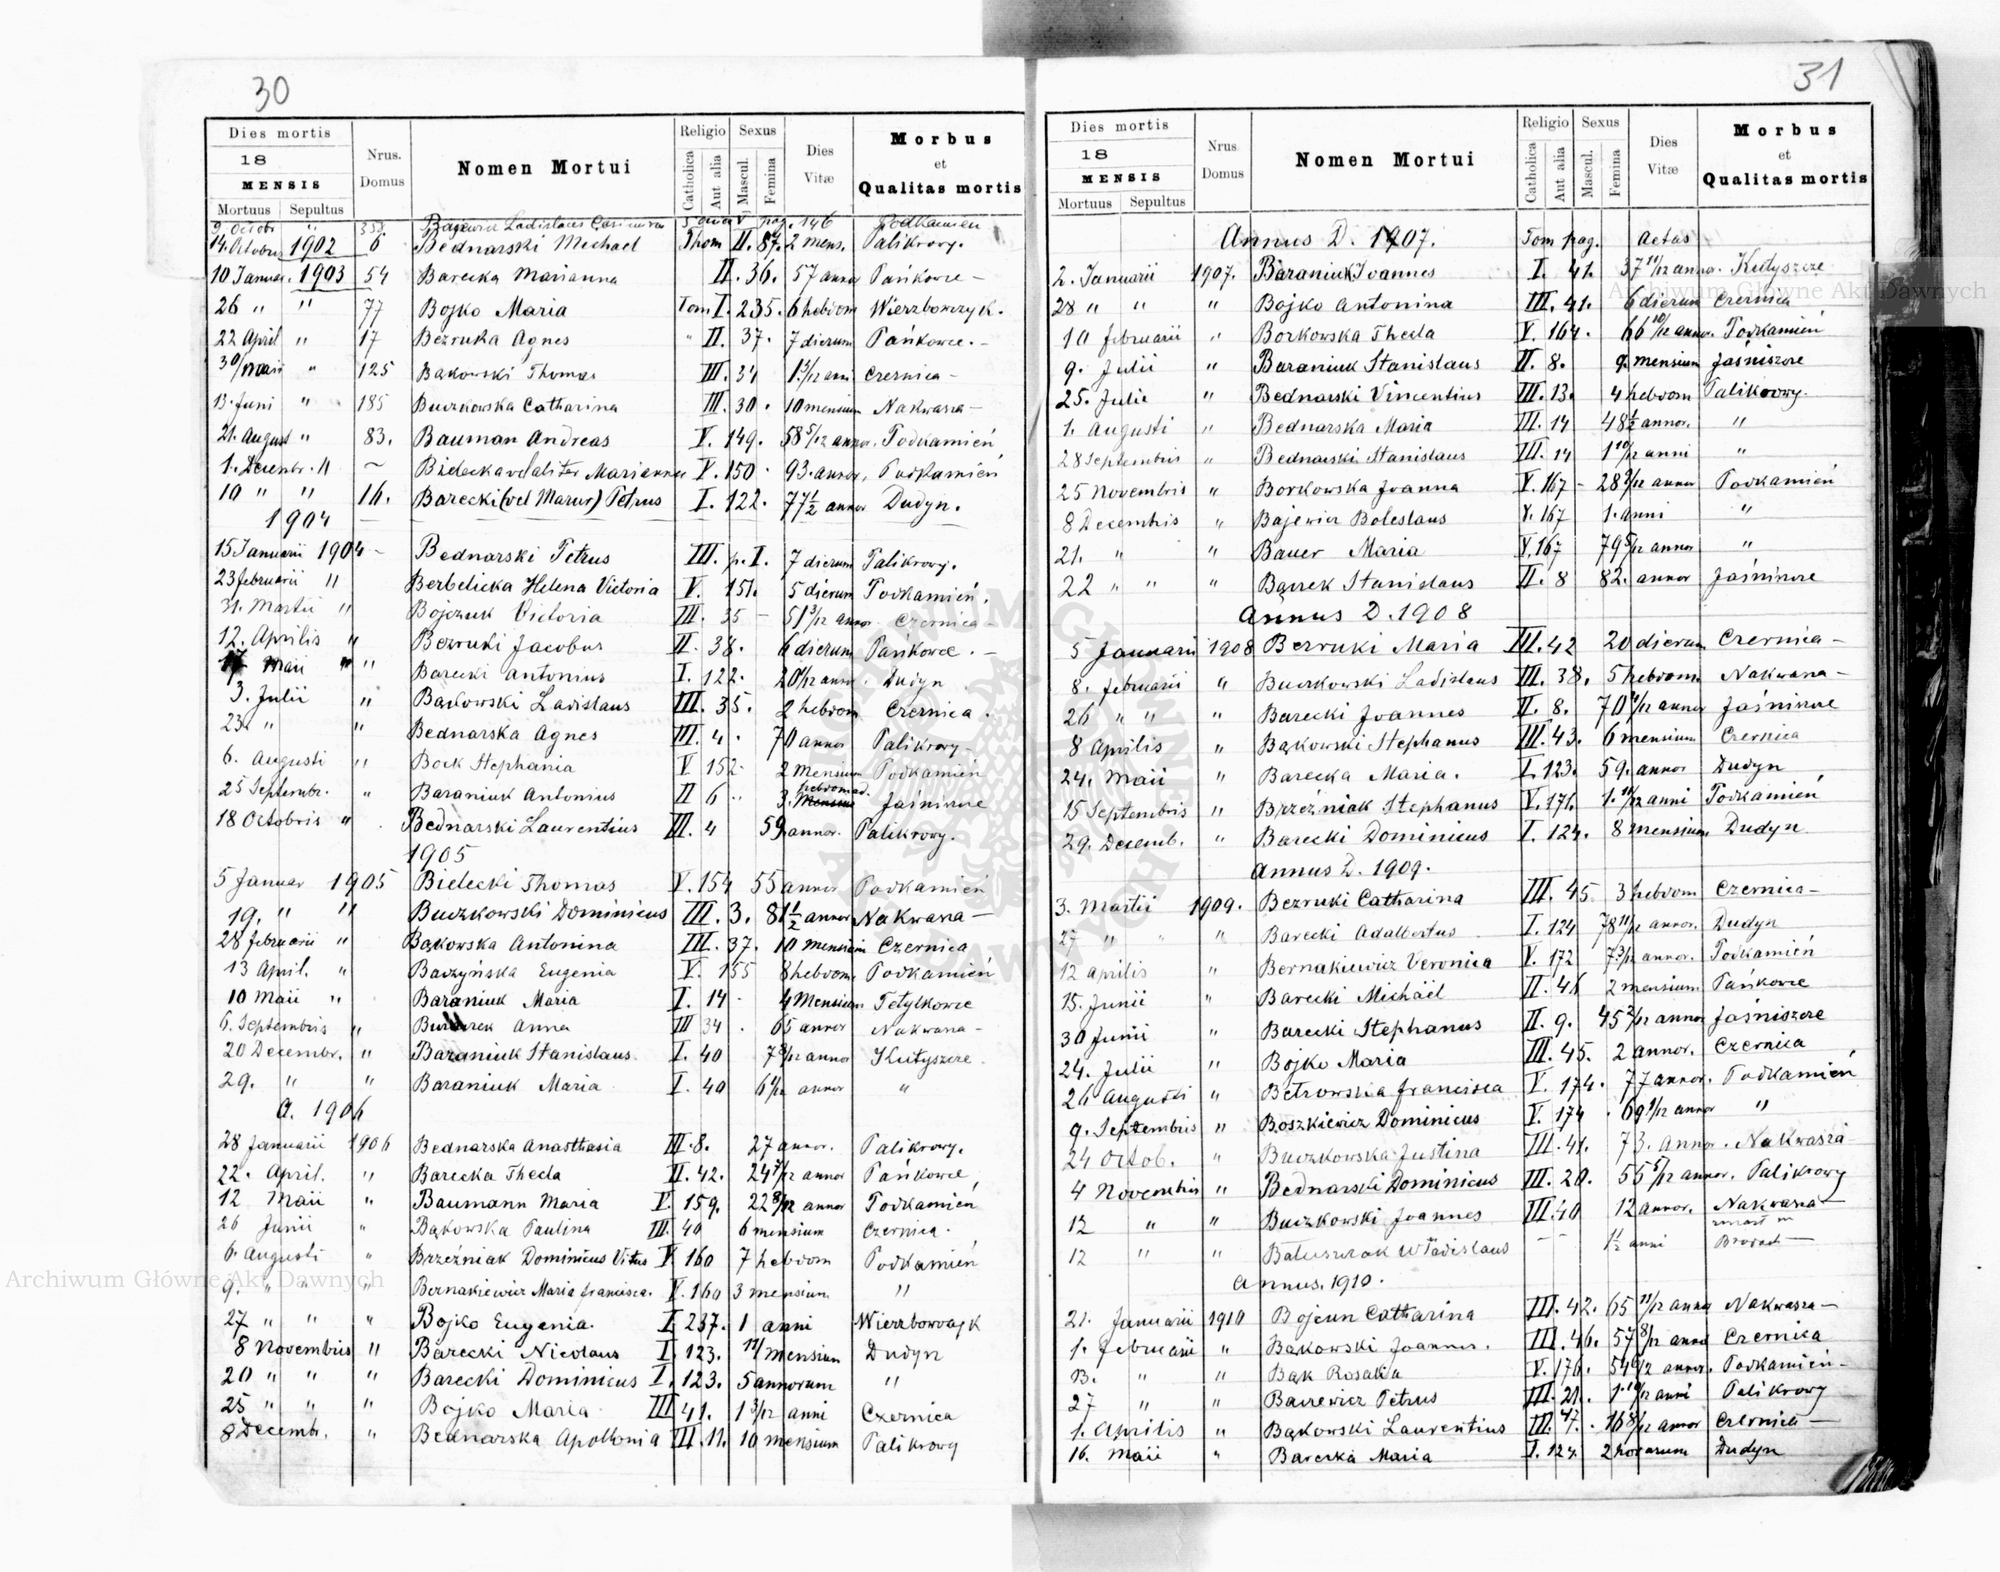 30
Dies mortis
18
MENSIS
Mortuus Sepultus
Nrus. Domus
Nomen Mortui
Religio
Catholica
Aut alia
Sexus
Mascul.
Femina
Dies Vitæ
Morbus et Qualitas mortis
9. Octobr. " Ladislaus Casimirus V pag. 146 Podkamien
14. Octobris 1902 6 Bednarski Michael Thom II. 87. 2 mens. Palikrowy.
10 Januar. 1903 54 Barecka Marianna II. 36. 57 annor Pańkowce –
26 " " 77 Bojko Maria Tom I. 235. 6 hebdom Wierzbowczyk.
22 April " 17 Bezrucka Agnes " II. 37. 7 dierum Pańkowce. –
30/Maii " 125 Bąkowski Thomas III. 34 1 3/12 anni Czernica –
13. Juni " 185 Buczkowska Catharina III. 30. 10 mensium Nakwasza –
21. August " 83. Bauman Andreas V. 149. 58 5/12 annor. Podkamień
1. Decembr. " ~ Bidecka vel aliter Marianna V. 150. 93. annor. Podkamień
10 " " 16. Barecki (vel Mazur) Petrus I. 122. 77 1/2 annor Dudyn.
1904
15 Januarii 1904 – Bednarski Petrus III. p. I. 7 dierum Palikrowy.
23 februarii " Berbelicka Helena Victoria V. 151. 5 dierum Podkamień.
31. Martii " Bojczuk Victoria III. 35 – 51 3/12 annor. Czernica –
12. Aprilis " Bezrucki Jacobus II. 38. 6 dierum Pańkowce. –
17 Maii " " Barecki Antonius I. 122. annor. Dudyn
3. Julii " Bąkowski Ladislaus III. 35. 2 hebdom Czernica.
23. " " Bednarska Agnes III. 4. 70 annor Palikrowy –
6. Augusti " Bock Stephania V 152. 2 mensium Podkamień
25 Septembr. " Baraniuk Antonius II 6 .. 3. hebdomad. Jaśniszcze
18 Octobris " Bednarski Laurentius III. 4 59 annor. Palikrowy.
1905
5 Januar 1905 Bielecki Thomas V. 154 55 annor Podkamień
19. " " Buczkowski Dominicus III. 3. 81 1/2 annor Nakwasza –
28 februarii " Bąkowska Antonina III. 37. 10 mensium Czernica
13 April. " Baczyńska Eugenia V. 155 8 hebdom Podkamień
10 Maii " Baraniuk Maria I. 14 – 4 Mensium Tetylkowce
6. Septembris " Anna III 34. 65 annor Nakwasza –
20 Decembr. " Baraniuk Stanislaus. I. 40 annor Kutyszcze.
29. " " Baraniuk Maria I. 40 annor "
A. 1906
28 Januarii 1906 Bednarska Anasthasia III. 8. 27 annor. Palikrowy.
22. April. " Barecka Thecla II. 42. 24 7/12 annor Pańkowce
12 Maii " Baumann Maria V. 159. 22 8/12 annor Podkamień
26 Junii " Bąkowska Paulina III. 40 6 mensium Czernica.
6. Augusti " Brzeźniak Dominicus Vitus V. 160 7 hebdom Podkamień
9. " " " Bernakiewicz Maria francisca. V. 160 3 mensium "
27 " " " Bojko Eugenia. I. 237. 1 anni Wierzbowczyk
8 Novembris " Barecki Nicolaus I. 123. mensium Dudyn
20 " " " Barecki Dominicus I. 123. 5 annorum "
25 " " " Bojko Maria III 41. 1 3/12 anni Czernica
8 Decembr. " Bednarska Apollonia III. 11. 10 mensium Palikrowy
31
Dies mortis
18
MENSIS
Mortuus Sepultus
Nrus. Domus
Nomen Mortui
Religio
Catholica
Aut alia
Sexus
Mascul.
Femina
Dies Vitæ
Morbus et Qualitas mortis
Annus D. 1907. Tom pag. aetas
2. Januarii 1907. Baraniuk Joannes I. 41. 37 11/12 annor. Kutyszcze
28 " " " Bojko Antonina III. 41. 6 dierum Czernica
10 februarii " Borkowska Thecla V. 164. 66 10/12 annor. Podkamień
9. Julii " Baraniuk Stanislaus II. 8. 9. mensium Jaśniszcze
25. Julii " Bednarski Vincentius III. 13. 4 hebdom Palikrowy.
1. Augusti " Bednarska Maria III. 14 48 1/2 annor. "
28 Septembris " Bednarski Stanislaus III. 14 1 10/12 anni "
25 Novembris " Borkowska Joanna V. 167 – 28 annor Podkamień
8 Decembris " Bajewicz Boleslaus V. 167 1. anni "
21. " " Bauer Maria V. 167 79 5/12 annor "
22 " " " Bączek Stanislaus II. 8 82. annor Jaśniszcze
Annus D. 1908
5 Januarii 1908 Bezrucki Maria III. 42 20 dierum Czernica –
8. februarii " Buczkowski Ladislaus III. 38. 5 hebdom Nakwasza –
26 " " " Barecki Joannes II. 8. 70 annor Jaśniszcze
8 Aprilis " Bąkowski Stephanus III. 43. 6 mensium Czernica
24. Maii " Barecka Maria. I. 123. 59. annor Dudyn
15 Septembris " Brzeźniak Stephanus V. 171. 1. 10/12 anni Podkamień
29. Decemb. " Barecki Dominicus I. 124. 8 mensium Dudyn
Annus D. 1909.
3. Martii 1909. Bezrucki Catharina III. 45 3 hebdom Czernica –
27 " " " Barecki Adalbertus I. 124 78 11/12 annor. Dudyn
12 Aprilis " Bernakiewicz Veronica V. 172 7 3/12 annor. Podkamień
15. Junii " Barecki Michäel II. 46 2 mensium Pańkowce
30 Junii " Barecki Stephanus II. 9. 45 2/12 annor Jaśniszcze
24. Julii " Bojko Maria III. 45. 2 annor. Czernica
26 Augusti " Betrowska francisca V. 174. 77 annor. Podkamień
9. Septembris " Boszkiewicz Dominicus V. 174. 69 annor "
24 Octob. " Buczkowska Justina III. 41. 73. Annor. Nakwasza
4 Novembris " Bednarski Dominicus III. 20. 55 5/12 annor. Palikrowy
12 " " Buczkowski Joannes III. 40 12 annor. Nakwasza
12 " " Baluszczak Władislaus – – 1 1/2 anni
Annus. 1910.
21. Januarii 1910 Bojcun Catharina III. 42. 65 11/12 annor Nakwasza –
1. februarii " Bąkowski Joannes. III. 46. 57 8/12 annor Czernica
13. " " Bąk Rosalia V. 176. annor. Podkamień –
27 " " Petrus III. 21. 1. 10/12 anni Palikrowy
1. Aprilis " Bąkowski Laurentius III. 47. 16 8/12 annor Czernica –
16. Maii " Barecka Maria I. 124. 2 horarum Dudyn
Archiwum Główne Akt Dawnych
Archiwum Główne Akt Dawnych